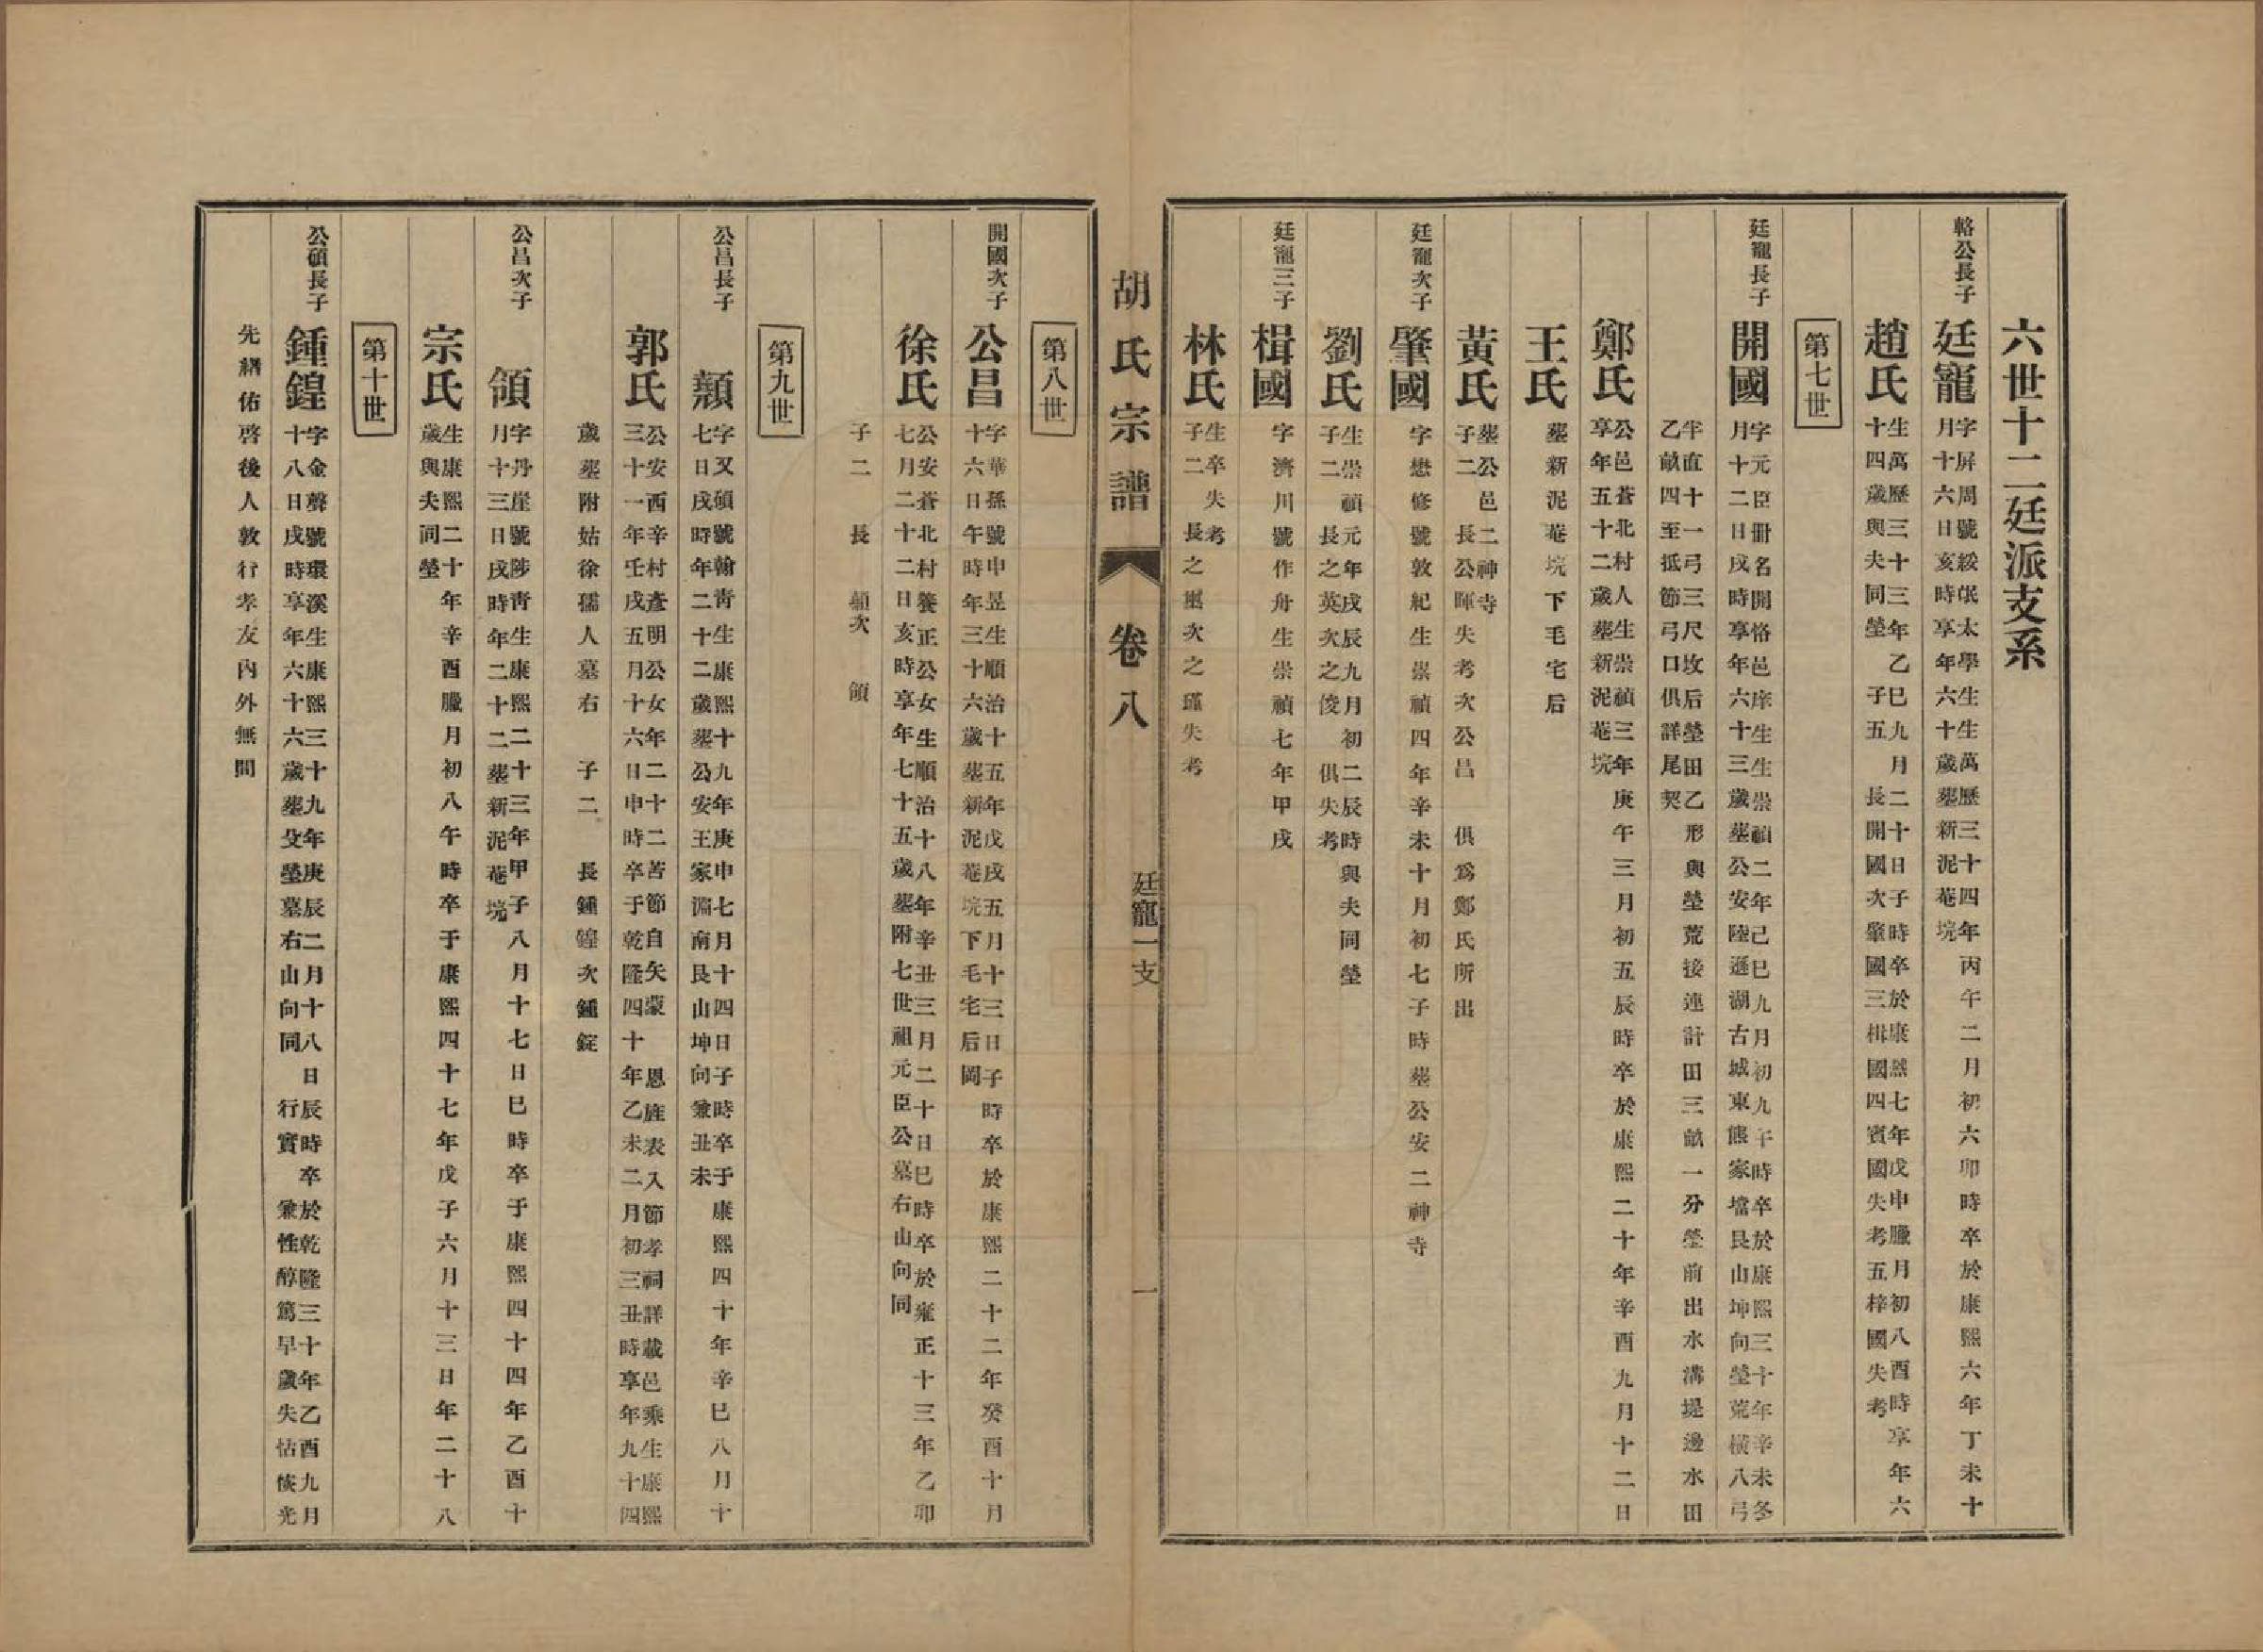 六世十二廷派支系
輅公長子 廷寵 字屏周號綏氓太學生生萬歷三十四年丙午二月初六卯時卒於康熙六年丁未十
月十六日亥時享年六十歲塟新泥菴垸
趙氏 生萬歷三十三年乙巳九月二十日子時卒於康熙七年戊申臘月初八酉時享年六
十四歲與夫同塋 子五 長開國次肇國三楫國四賓國失考五梓國失考
第七世
廷寵長子 開國 字元臣冊名開恪邑庠生生崇禎二年己巳九月初九午時卒於康熙三十年辛未冬
月十二日戌時享年六十三歲塟公安陸遜湖古城東熊家壋艮山坤向塋荒橫八弓
半直十一弓三尺坟后塋田乙形與塋荒接連計田三畝一分塋前出水溝堤邊水田
乙畝四至抵節弓口俱詳尾契
鄭氏 公邑蒼北村人生崇禎三年庚午三月初五辰時卒於康熙二十年辛酉九月十二日
享年五十二歲塟新泥菴垸
王氏 塟新泥菴垸下毛宅后
黃氏 塟公邑二神寺
子二 長公暉失考次公昌 俱爲鄭氏所出
廷寵次子 肇國 字懋修號敦紀生崇禎四年辛未十月初七子時塟公安二神寺
劉氏 生崇禎元年戊辰九月初二辰時與夫同塋
子二 長之英次之俊 俱失考
廷寵三子 楫國 字濟川號作舟生崇禎七年甲戌
林氏 生卒失考
子二 長之 次之 失考
胡氏宗譜 卷八 廷寵一支 一
第八世
開國次子 公昌 字華孫號申昱生順治十五年戊戌五月十三日子時卒於康熙二十二年癸酉十月
十六日午時年三十六歲塟新泥菴垸下毛宅后岡
徐氏 公安蒼北村養正公女生順治十八年辛丑三月二十日巳時卒於雍正十三年乙卯
七月二十二日亥時享年七十五歲塟附七世祖元臣公墓右山向同
子二 長 纇次 領
第九世
公昌長子 纇 字又碩號翰靑生康熙十九年庚申七月十四日子時卒于康熙四十年辛巳八月十
七日戌時年二十二歲塟公安王家淵南艮山坤向兼丑未
郭氏 公安酉辛村彥明公女年二十二苦節自矢蒙 恩旌表入節孝祠詳載邑乘生康熙
三十一年壬戌五月十六日申時卒于乾隆四十年乙未二月初三丑時享年九十四
歲塟附姑徐孺人墓右 子二 長鍾鍠次鍾錠
公昌次子 領 字丹崖號陟靑生康熙二十三年甲子八月十七日巳時卒于康熙四十四年乙酉十
月十三日戌時年二十二塟新泥菴垸
宗氏 生康熙二十年辛酉臘月初八午時卒于康熙四十七年戊子六月十三日年二十八
歲與夫同塋
第十世
公碩長子 鍾鍠 字金聲號環溪生康熙三十九年庚辰二月十八日辰時卒於乾隆三十年乙酉九月
十八日戌時享年六十六歲塟 塋墓右山向同 行實 兼性醇篤早歲失怙恢光
先緒佑啓後人敦行孝友內外無間